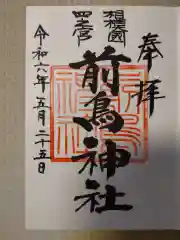 奉拝
相模國
四之宮
前鳥神社
令和六年五月二十五日